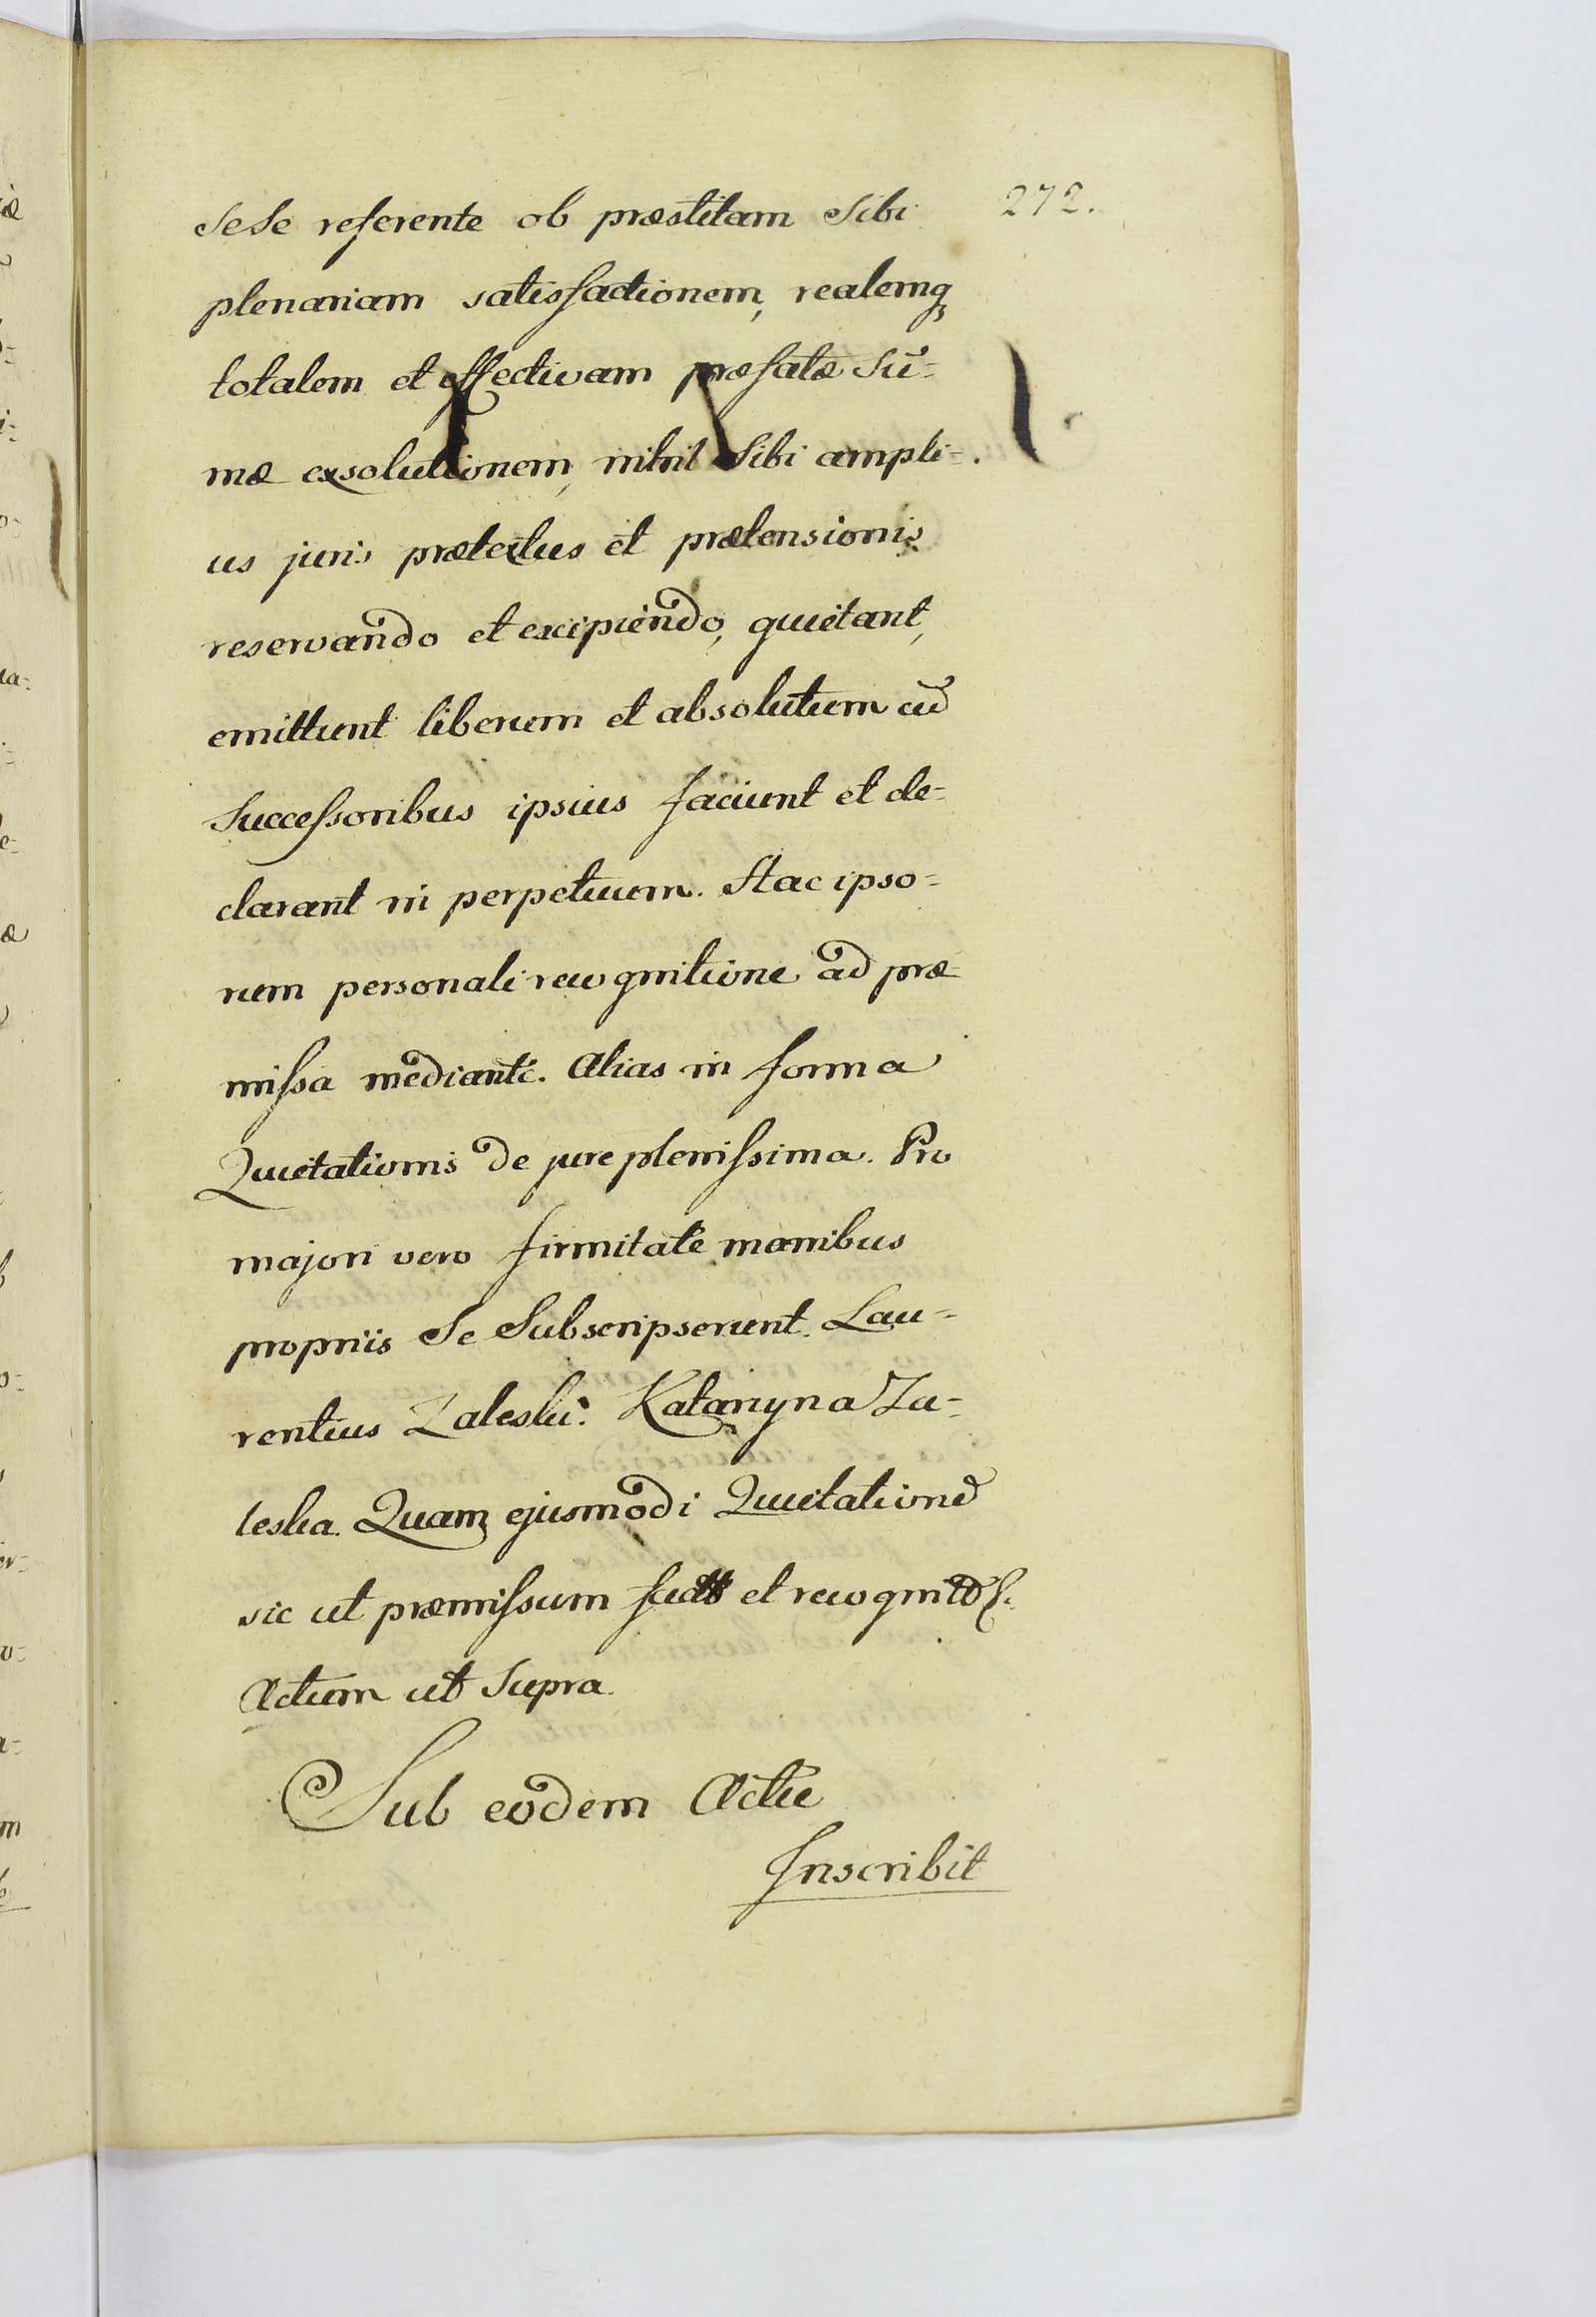 272.
sese referente ob præstitam sibi
plenariam satisfactionem, realemq̃
totalem et effectivam præfatæ sū=
mæ exsolutionem, nihil sibi ampli=
us juris prætextus et prætensionis
reservando et excipiendo, quietant,
emittunt liberum et absolutum cū
successoribus ipsius faciunt et de=
clarant in perpetuum. Hac ipso=
rum personali recognitione ad præ
missa mediante. Alias in forma
Quietationis de jure plenissima. Pro
majori vero firmitate manibus
propriis se subscripserunt. Lau=
rentius Zaleski. Katarzyna Za=
leska. Quam ejusmodi Quietationē
sic ut præmissum et
Actum ut supra.
Sub eodem Actu
Inscribit